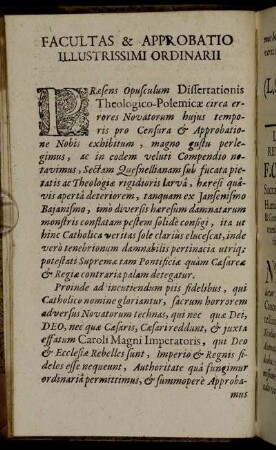 FACULTAS & APPROBATIO
ILLUSTRISSIMI ORDINARII
PRæsens Opusculum Dissertationis
Theologico-Polemicæ circa er-
rores Novatorum hujus tempo-
ris pro Censura & Approbatio-
ne Nobis exhibitum, magno gustu perle-
gimus, ac in eodem veluti Compendio no-
tavimus, Sectam Quesnellianam sub fucata pie-
tatis ac Theologiæ rigidioris larvâ, hæresi quâ-
vis apertâ deteriorem, tanquam ex Jansenismo
Bajanismo, imò diversis hæresum damnatarum
monstris conflatam pestem solidè confici, ita ut
hinc Catholica veritas sole clariùs elucescat, inde
verò tenebrionum damnabilis pertinacia utriq;
potestati Supremæ tam Pontificiæ quàm Cæsareæ
& Regiæ contraria palam detegatur.
Proinde ad incutiendum piis fidelibus, qui
Catholico nomine gloriantur, sacrum horrorem
adversus Novatorum technas, qui nec quæ Dei,
DEO, nec quæ Cæsaris, Cæsari reddunt, & juxta
effatum Caroli Magni Imperatoris, qui Deo
& Ecclesiæ Rebelles sunt, Imperio & Regnis fi-
deles esse nequeunt, Authoritate quâ fungimur
ordinariâ permittimus, & summopere Approba-
mus